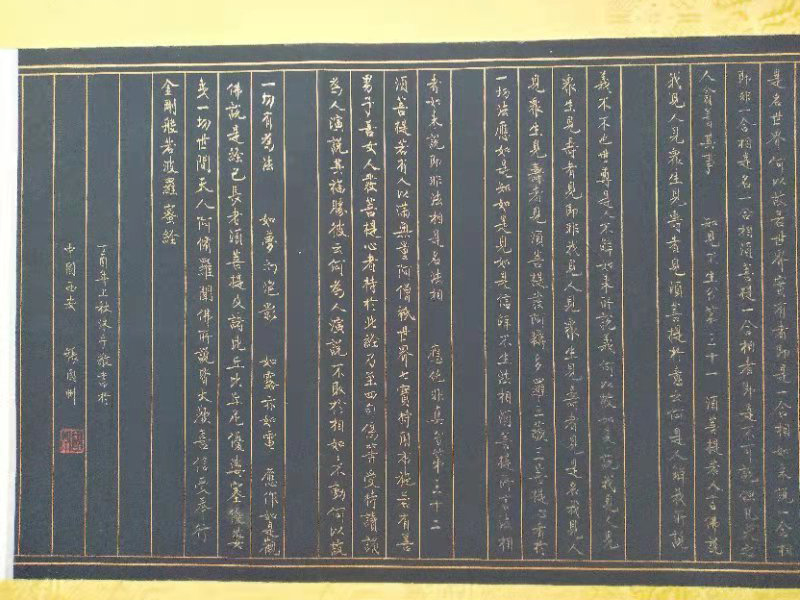 是名世界何以故若世界實有者即是一合相如來說一合相
即非一合相是名一合相須菩提一合相者即是不可說但凡夫之
人貪著其事 知見不生分第三十一 須菩提若人言佛說
我見人見眾生見壽者見須菩提於意云何是人解我所說
義不不也世尊是人不解如來所說義何以故如來說我見人見
眾生見壽者見即非我見人見眾生見壽者見是名我見人
見眾生見壽者見須菩提發阿耨多羅三藐三菩提心者於
一切法應如是知如是見如是信解不生法相須菩提所言法相
者如來說即非法相是名法相 應化非真分第三十二
須菩提若有人以滿無量阿僧祇世界七寶持用布施若有善
男子善女人發菩提心者持於此經乃至四句偈等受持讀誦
為人演說其福勝彼云何為人演說不取於相如如不動何以故
一切有為法 如夢幻泡影 如露亦如電 應作如是觀
佛說是經已長老須菩提及諸比丘比丘尼優婆塞優婆夷
一切世間天人阿脩羅聞佛所說皆大歡喜信受奉行
金剛般若波羅蜜經
丁酉年上秋 敬書於
中國西安